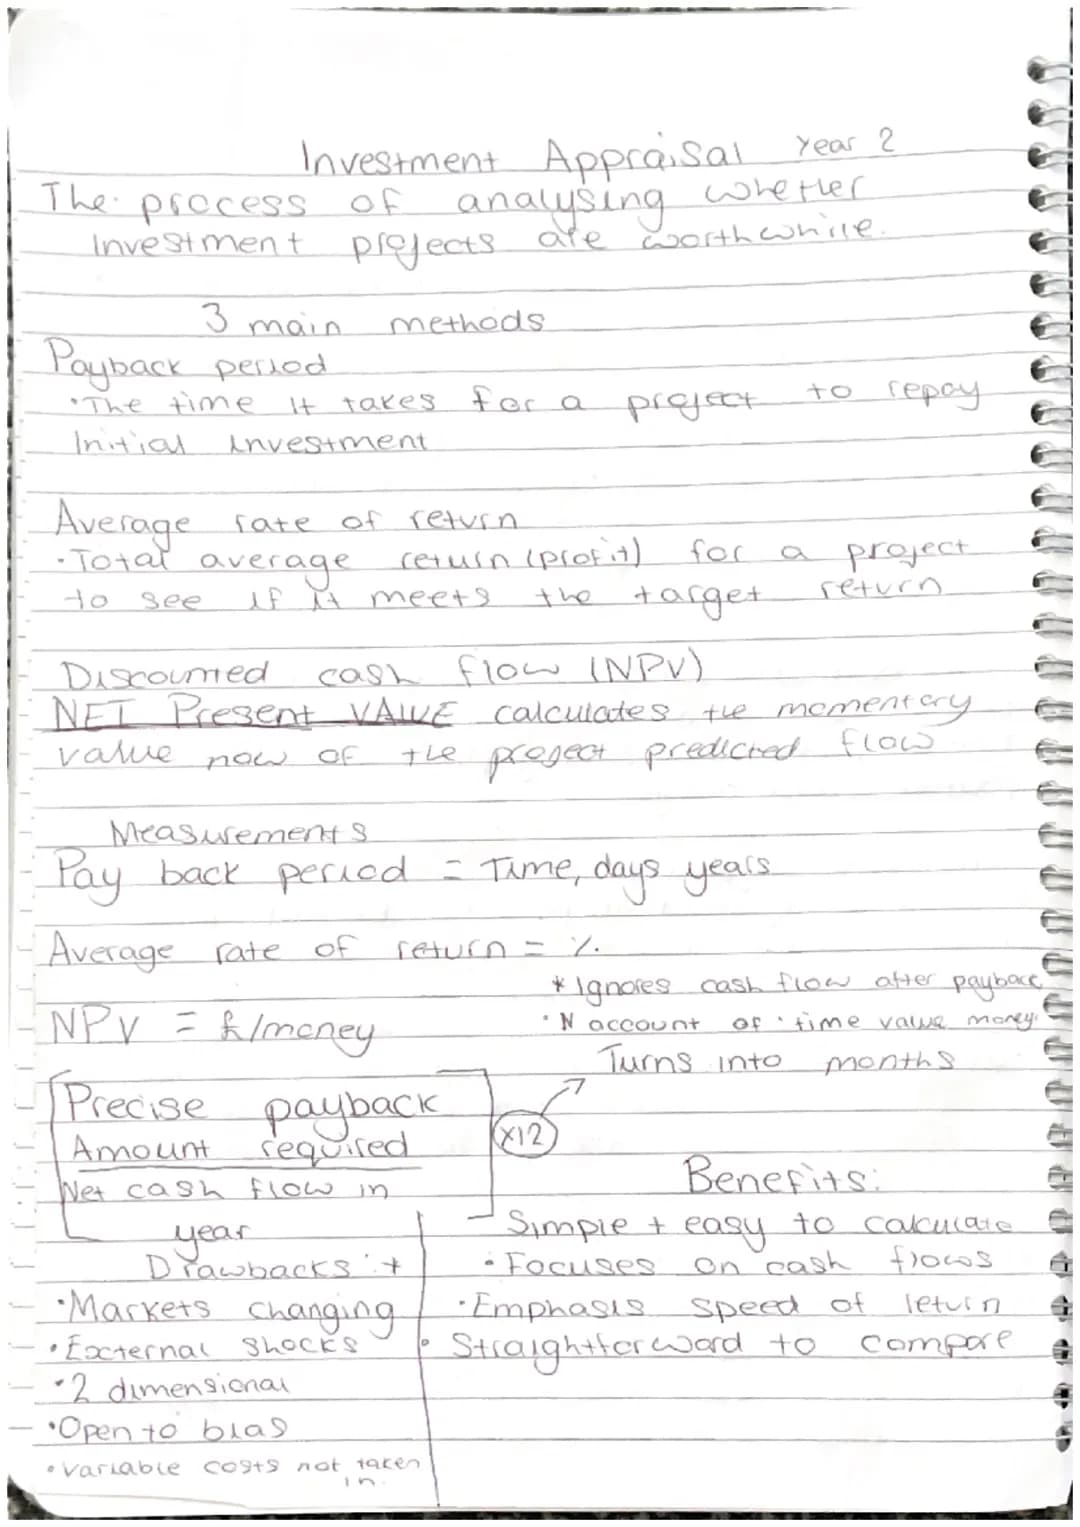 Investment Appraisal Year 2
The process of analysing whether
investment projects are worthwhile.
3 main methods
Payback period
•The time it takes for a project to repay
Initial investment
Average rate of return
•Total average return (profit) for a project
to see if it meets the target return
Discounted cash flow (NPV)
NET Present VALUE calculates the momentary
value now of the project predicted flow
Measurements
Pay back period = Time, days years
Average rate of return = %.
* Ignores cash flow after payback
NPV = £/money
•N account of time value money
Turns into months
Precise payback
Amount required
Net cash flow in
year
x12
Benefits:
Simple + easy to calculate
•Focuses on cash flows
•Emphasis speed of return
•Straightforward to compare
Drawbacks: +
•Markets changing
•External shocks
•2 dimensional
•Open to bias
•variable costs not taken
in.